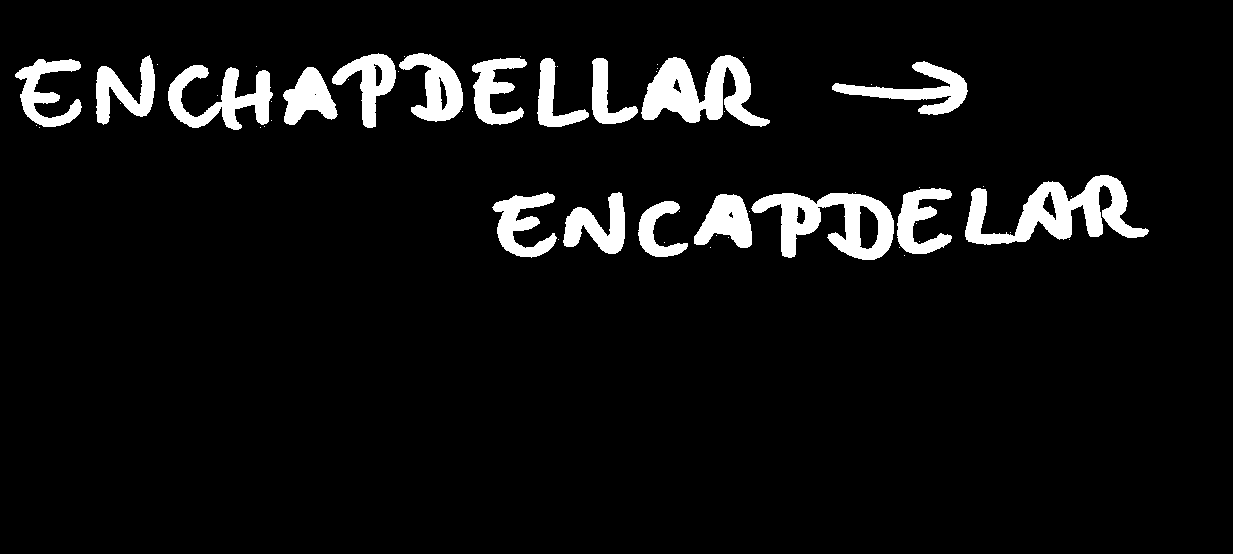 ENCHAPDELLAR →
ENCAPDELAR